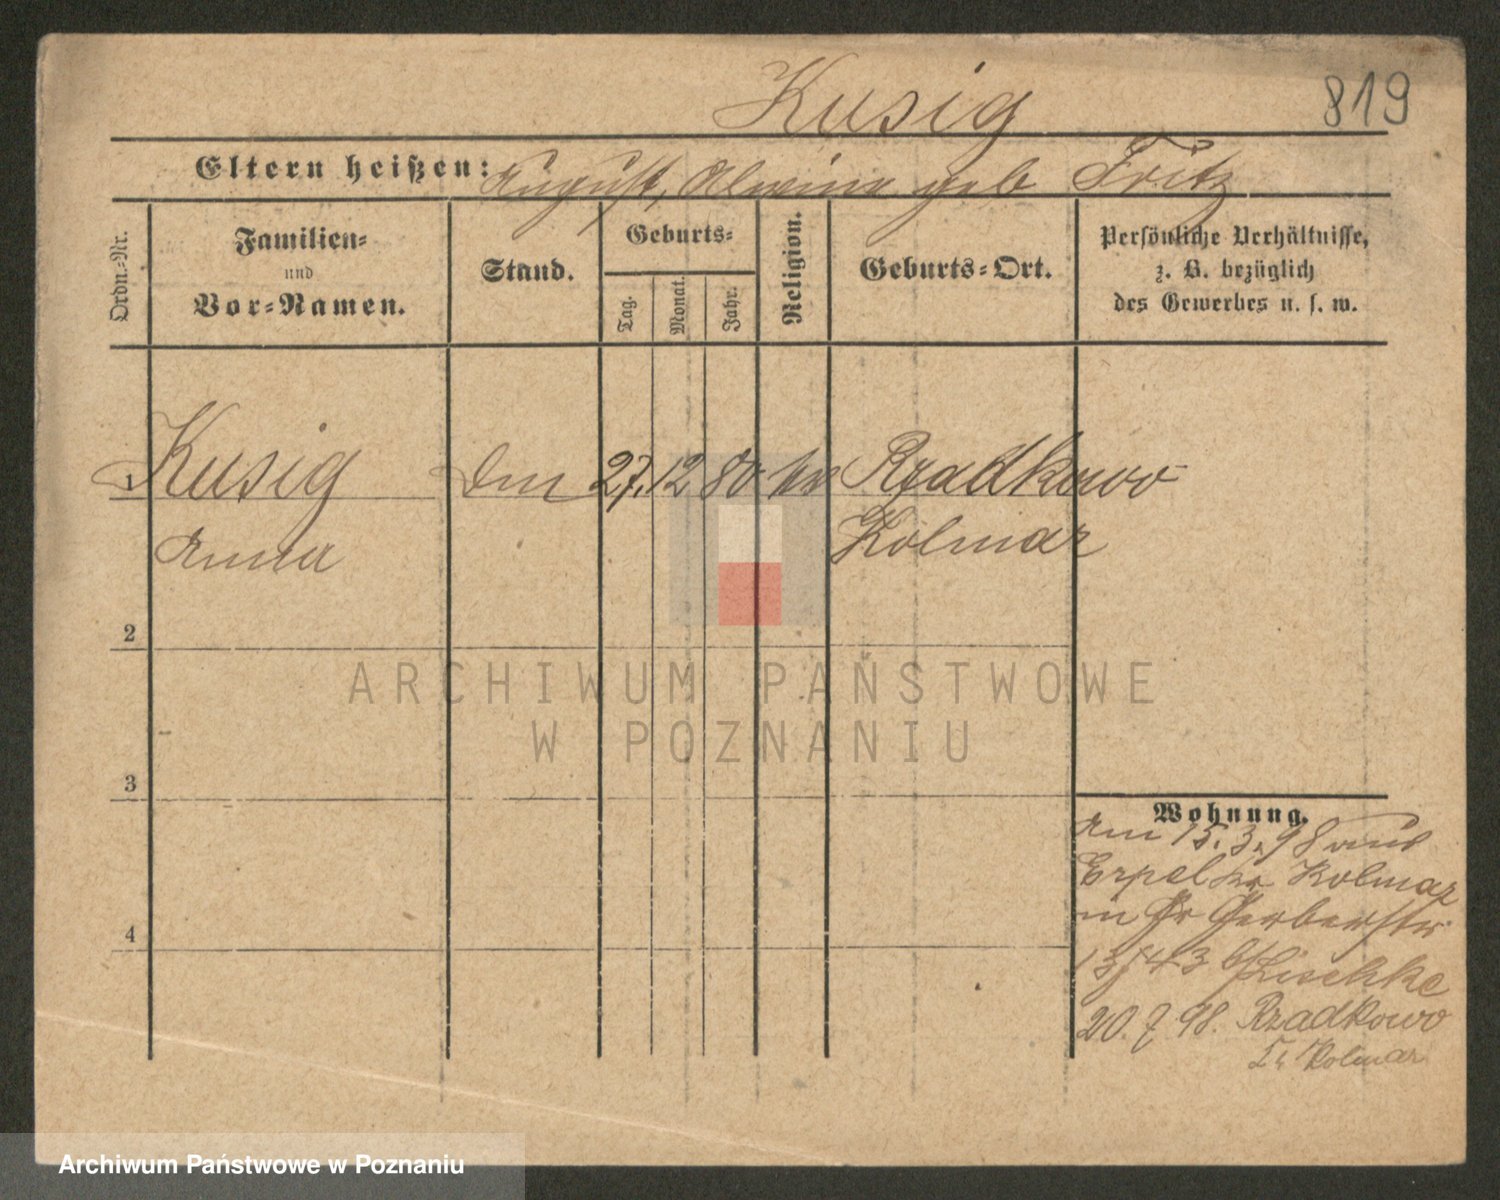 Kusig
819
Eltern heißen: August, Alwine geb Fritz
Ordn.-Nr.
Familien-
und
Vor-Namen.
Stand.
Geburts-
Tag.
Monat.
Jahr.
Religion.
Geburts-Ort.
Persönliche Verhältnisse,
z. B. bezüglich
des Gewerbes u. s. w.
1 Kusig 27. 12 80 Rzadkowo
Anna Kolmar
2
ARCHIWUM PAŃSTWOWE
W POZNANIU
3
Wohnung.
Am 15.3.98 aus
Erpel Kr Kolmar
in Gr Gerberstr
13/43 b/ Lischke
4
20.7.98. Rzadkowo
Kr Kolmar
Archiwum Państwowe w Poznaniu